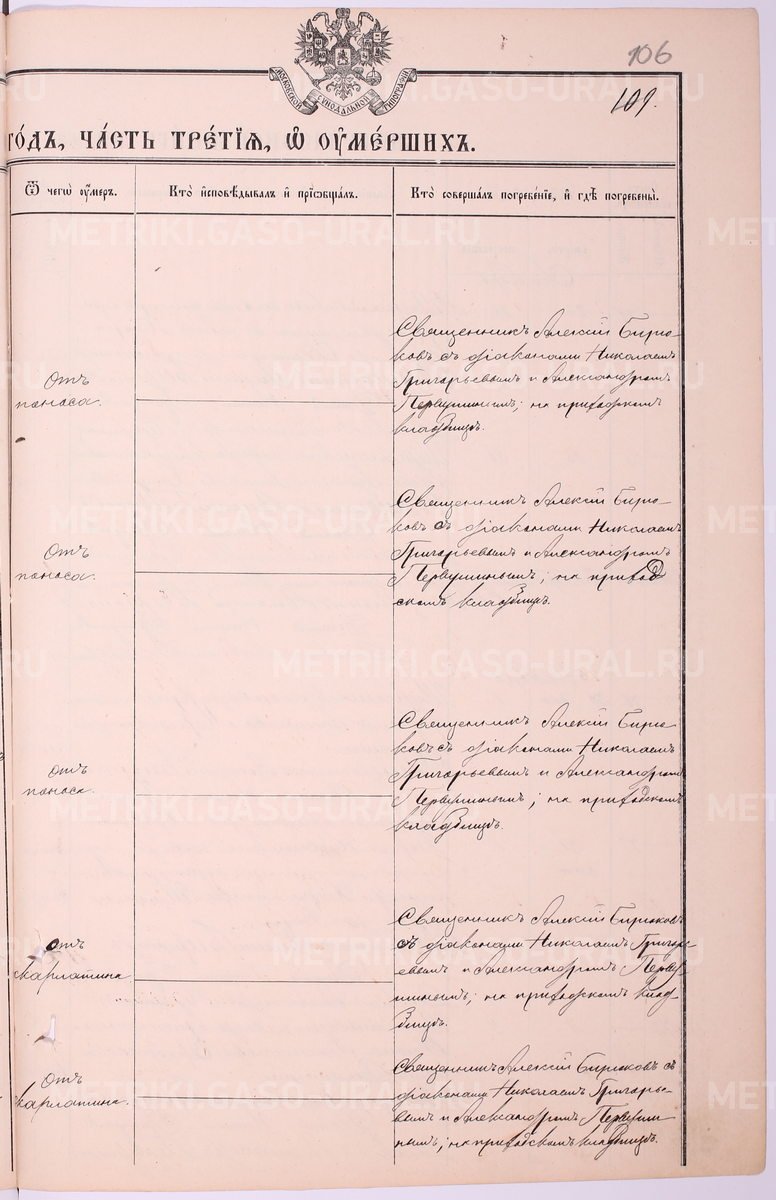 106
109.
МОСКОВСКОЙ СУНОДАЛЬНОЙ ТИПОГРАФІИ
го́дъ, ча́сть тре́тїѧ, ѡ҆ оу҆ме́ршихъ.
Ѿ чегѡ̀ оу҆́меръ.
Кто̀ и҆сповѣ́дывалъ и҆ прїѡбща́лъ.
Кто̀ соверша́лъ погребе́нїе, и҆ гдѣ̀ погребены̀.
Отъ
поноса.
Священникъ Алексій Бирю-
ковъ съ діаконами Николаемъ
Григорьевымъ и Александромъ
Первушинымъ; на приходскомъ
кладбищѣ.
Отъ
поноса.
Священникъ Алексій Бирю-
ковъ съ діаконами Николаемъ
Григорьевымъ и Александромъ
Первушинымъ; на приход
скомъ кладбищѣ.
Отъ
поноса.
Священникъ Алексій Бирю-
ковъ съ діаконами Николаемъ
Григорьевымъ и Александромъ
Первушинымъ; на приходскомъ
кладбищѣ.
Отъ
скарлатина
Священникъ Алексій Бирюковъ
съ діаконами Николаемъ Григорь-
евымъ и Александромъ Перву-
шинымъ; на приходскомъ клад-
бищѣ.
Отъ
скарлатина.
Священникъ Алексій Бирюковъ съ
діаконами Николаемъ Григорье-
вымъ и Александромъ Первуши-
нымъ; на приходскомъ кладбищѣ.
METRIKI.GASO-URAL.RU